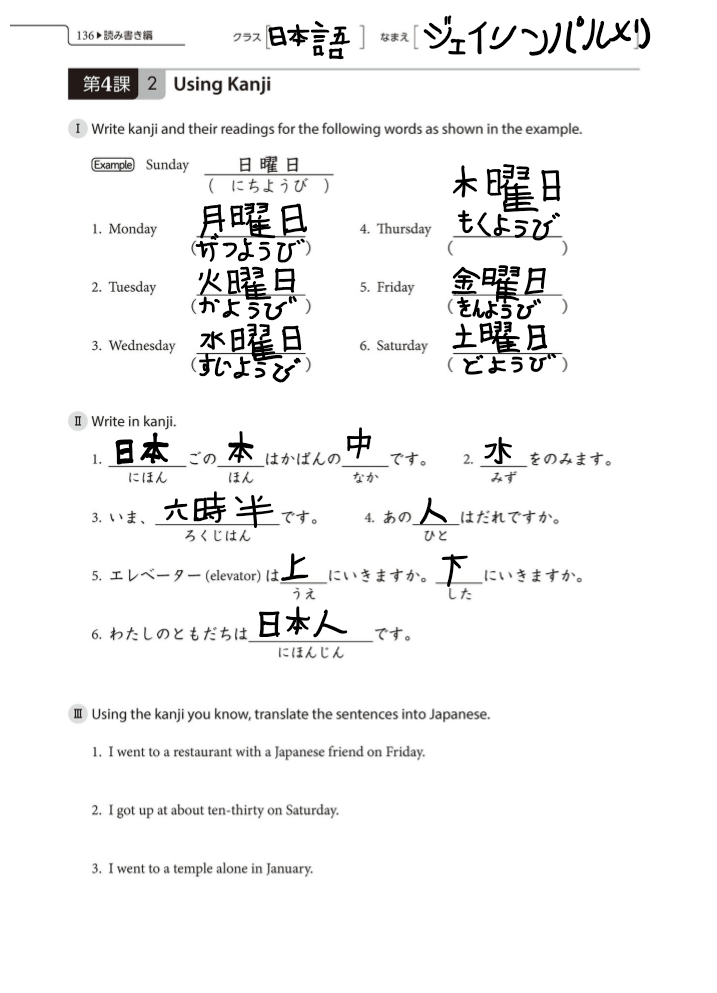 136▶読み書き編 クラス[日本語] なまえ[ジェイソンパルメリ]
第4課 2 Using Kanji
Ⅰ Write kanji and their readings for the following words as shown in the example.
Example Sunday 日曜日
( にちようび )
1. Monday 月曜日
(げつようび)
2. Tuesday 火曜日
(かようび)
3. Wednesday 水曜日
(すいようび)
4. Thursday 木曜日
もくようび
( )
5. Friday 金曜日
(きんようび)
6. Saturday 土曜日
(どようび)
Ⅱ Write in kanji.
1. 日本ごの本はかばんの中です。 2. 水をのみます。
にほん ほん なか みず
3. いま、六時半です。 4. あの人はだれですか。
ろくじはん ひと
5. エレベーター (elevator) は上にいきますか。下にいきますか。
うえ した
6. わたしのともだちは日本人です。
にほんじん
Ⅲ Using the kanji you know, translate the sentences into Japanese.
1. I went to a restaurant with a Japanese friend on Friday.
2. I got up at about ten-thirty on Saturday.
3. I went to a temple alone in January.